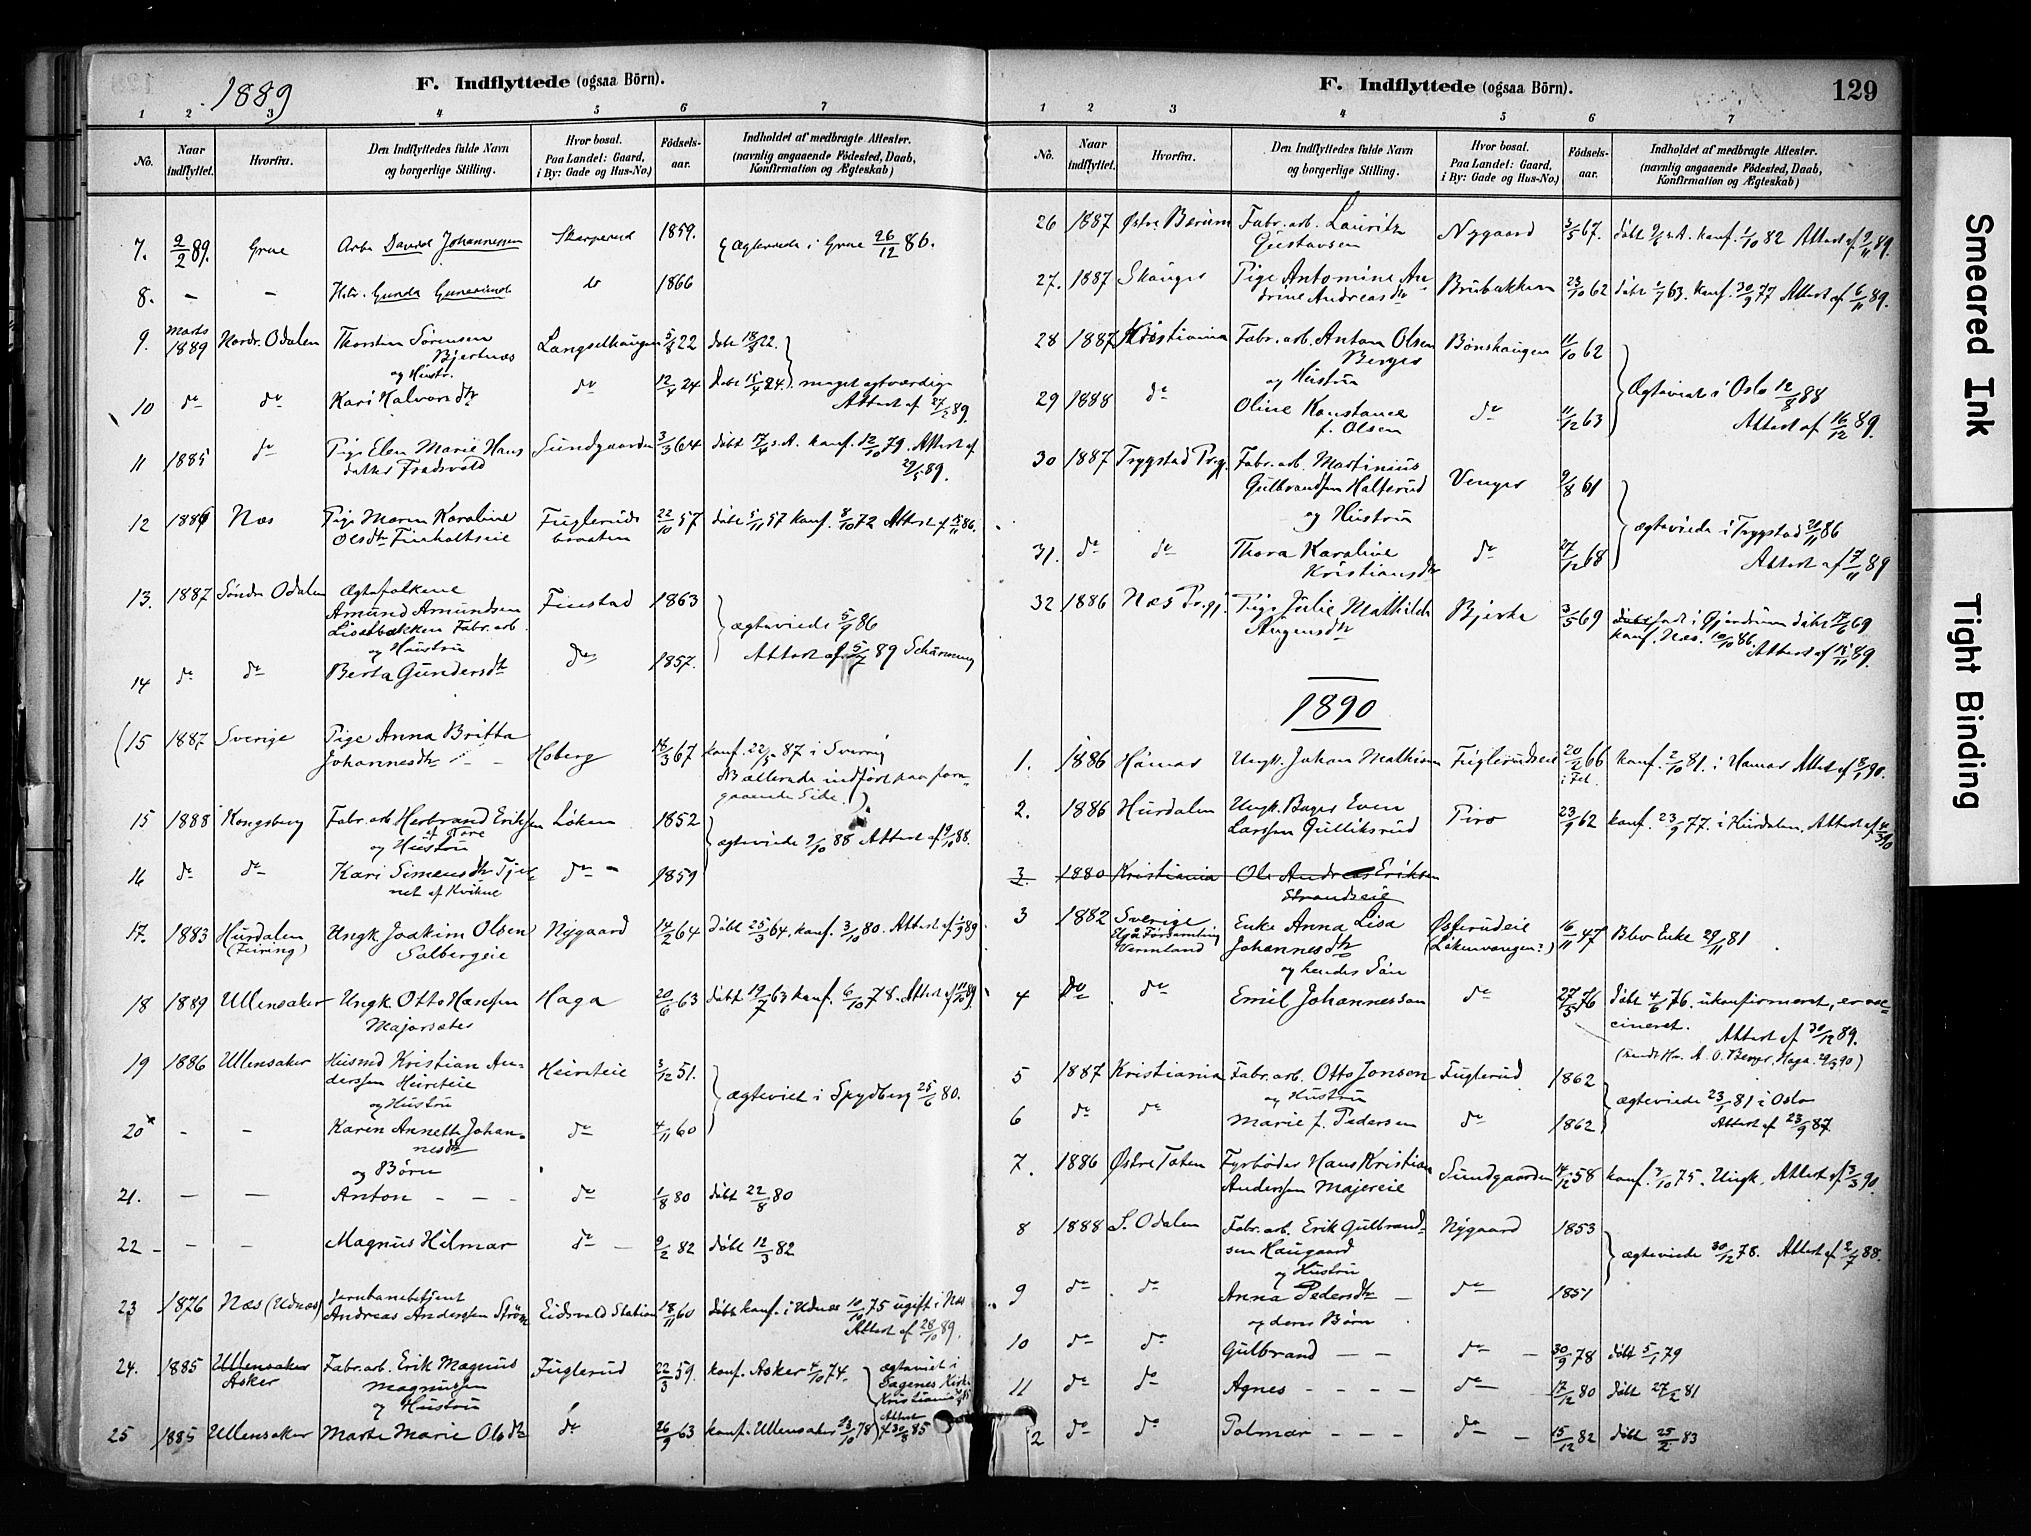 1889
F. Indflyttede (ogsaa Börn).
1 2 3 4 5 6 7
No. Naar indflyttet. Hvorfra. Den Indflyttedes fulde Navn og borgerlige Stilling. Hvor bosat. Paa Landet: Gaard, i By: Gade og Hus-No.) Fødselsaar. Indholdet af medbragte Attester. (navnlig angaaende Födested, Daab, Konfirmation og Ægteskab)
7. 2/2 89. Grue Arb. David Johannessen Skarperud 1859. Ægteviede i Grue 26/12 86.
8. — — Hstr. Gunda do 1866
9. Marts 1889 Nordr. Odalen Thorsten Sörensen Bjertnæs Langselhaugen 5/8 22 döbt 18/8 22.
og Hustr.
10 do do Kari Halvorsdtr do 12/4 24 döbt 15/4 24. meget agtværdige
Attest af 27/2 89.
11 1885 do Pige Elen Marie Hansdatter Fradsvold Sundgaarden 3/3 64 döbt 17/4 s.A. konf. 12/10 79. Attest af
29/5 89.
12 1886 Næs Pige Maren Karoline Olsdtr Finholtseie Fuglerudsbraaten 22/10 57 döbt 5/11 57 konf. 8/10 72 Attest af 15/11 86.
13. 1887 Söndr Odalen Ægtefolkene
Amund Amundsen Finstad 1863 ægteviede 5/9 86
Lisetbakken Fabr. arb.
og Hustru Attest af 5/7 89 Schiørning
14 do do Berta Gundersdtr do 1857.
(15 1887 Sverige Pige Anna Britta Johannesdtr Hoberg 18/3 67 konf. 22/5 87 i Sverrig
NB allerede indført paa foregaaende Side.)
15 1888 Kongsberg Fabr. arb Herbrand Eriksen Løken 1852 ægteviede 9/10 88 Attest af 9/10 88.
og Hustru
16 do do Kari Simensdtr do 1859
17. 1883 Hurdalen (Feiring) Ungk. Joakim Olsen Solbergeie Nygaard 14/2 64 döbt 25/3 64. konf. 3/10 80. Attest af 1/9 89
18 1889 Ullensaker Ungk Otto Hansen Majorsæter Haga 20/6 63 döbt 19/7 63 konf. 6/10 78. Attest af 11/10 89.
19 1886 Ullensaker Husmd Kristian Anderssen Heireteie Heireteie 3/12 51. ægteviet i Spydberg 25/6 80.
og Hustru
20 — — Karen Annette Johannesdtr do 4/11 60
og Börn
21. — — Anton — — — do 1/8 80 döbt 22/8 80
22 — — — Magnus Hilmar do — 9/2 82 döbt 12/3 82
23 1876 Næs (Udnæs) Jernbanebetjent Andreas Anderssen Ström Eidsvold Station 18/11 60 döbt konf. i Udnæs 10/10 75 ugift i Næs
Attest af 28/10 89.
24. 1885 Ullensaker Asker Fabr. arb. Erik Magnus Magnussen Fuglerud 22/3 59 konf. Asker 4/10 74. ægteviet i
Sagenes Kirke
Kristiania
og Hustru
Attest
25 1885 Ullensaker Marte Marie Olsdtr do 26/9 63 konf. Ullensaker 13/10 78 af 30/8 85
129
F. Indflyttede (ogsaa Börn).
1 2 3 4 5 6 7
No. Naar indflyttet. Hvorfra. Den Indflyttedes fulde Navn og borgerlige Stilling. Hvor bosat. Paa Landet: Gaard, i By: Gade og Hus-No.) Fødselsaar. Indholdet af medbragte Attester. (navnlig angaaende Födested, Daab, Konfirmation og Ægteskab)
26 1887 Østre Bærum Fabr. arb. Lauritz Gustavsen Nygaard 3/5 67. döbt 9/6 s.A. konf. 1/10 82 Attest af 9/11 89.
27. 1887 Skauger Pige Antomine Andrine Andreasdtr Brubakken 23/10 62 döbt 1/1 63. konf. 30/9 77 Attest af 6/11 89.
28 1887 Kristiania Fabr. arb. Anton Olsen Berger Bönshaugen 11/10 62
og Hustru
Ægteviet i Oslo 12/8 88
29 1888 do Oline Konstance f. Olsen do 11/12 63
Attest af 16/12 89.
30 1887 Trygstad Prgj. Fabr. arb. Martinius Gulbrandsen Halterud Venger 9/8 61
og Hustru
ægteviede i Trygstad 26/11 86
31. do do Thora Karoline Kristiansdtr do 27/12 68
Attest af 17/11 89
32 1886 Næs Prgj. Pige Julie Mathilde Augensdtr Bjerke 3/5 69 født i Gjerdrum döbt 17/6 69
konf. Næs. 10/10 86. Attest af 15/11 89.
1890
1. 1886 Hamar Ungk. Johan Mathisen Fuglerudeie 20/2 66 konf. 2/10 81. i Hamar Attest af 8/1 90.
2. 1886 Hurdalen Ungk. Bager Even Larssen Gulliksrud Piro 23/9 62 konf. 23/9 77. i Hurdalen. Attest af 4/3 90
3 1880 Kristiania Ole Andreas Eriksen Strandseie
3 1882 Sverige Församling Vermland Enke Anna Lisa Johannesdtr Østerudeie (Løkenvangen?) 16/11 47 Blev Enke 29/11 81
og hendes Sön
4 Do do Emil Johannesson do 27/5 76 döbt 4/6 76. ukonfirmeret, er vaccineret.
Attest af 30/12 89.
(sendt Hr. A. O. Berger, Haga 29/3 90)
5 1887 Kristiania Fabr. arb. Otto Jonson Fuglerud 1862
og Hustru
ægteviede 23/1 81 i Oslo
6 do do Marie f. Pedersen do 1862
Attest af 23/9 87.
7. 1886 Østre Toten Fyrbøder Hans Kristian Anderssen Majereie Sundgaarden 14/12 58 konf. 3/10 75. Ungk. Attest af 3/3 90.
8 1888 S. Odalen Fabr. arb. Erik Gulbrandsen Haugaard Nygaard 1853
og Hustru
ægteviede 30/12 78. Attest af 2/7 88.
9 do do Anna Pedersdtr — do 1851
og deres Börn
10 do do Gulbrand — — do — 30/9 78 döbt 5/1 79
11 do do Agnes — — — — do 17/12 80 döbt 27/2 81
12 do do Palmar — — — do — 15/12 82 döbt 25/2 83
Smeared Ink
Tight Binding